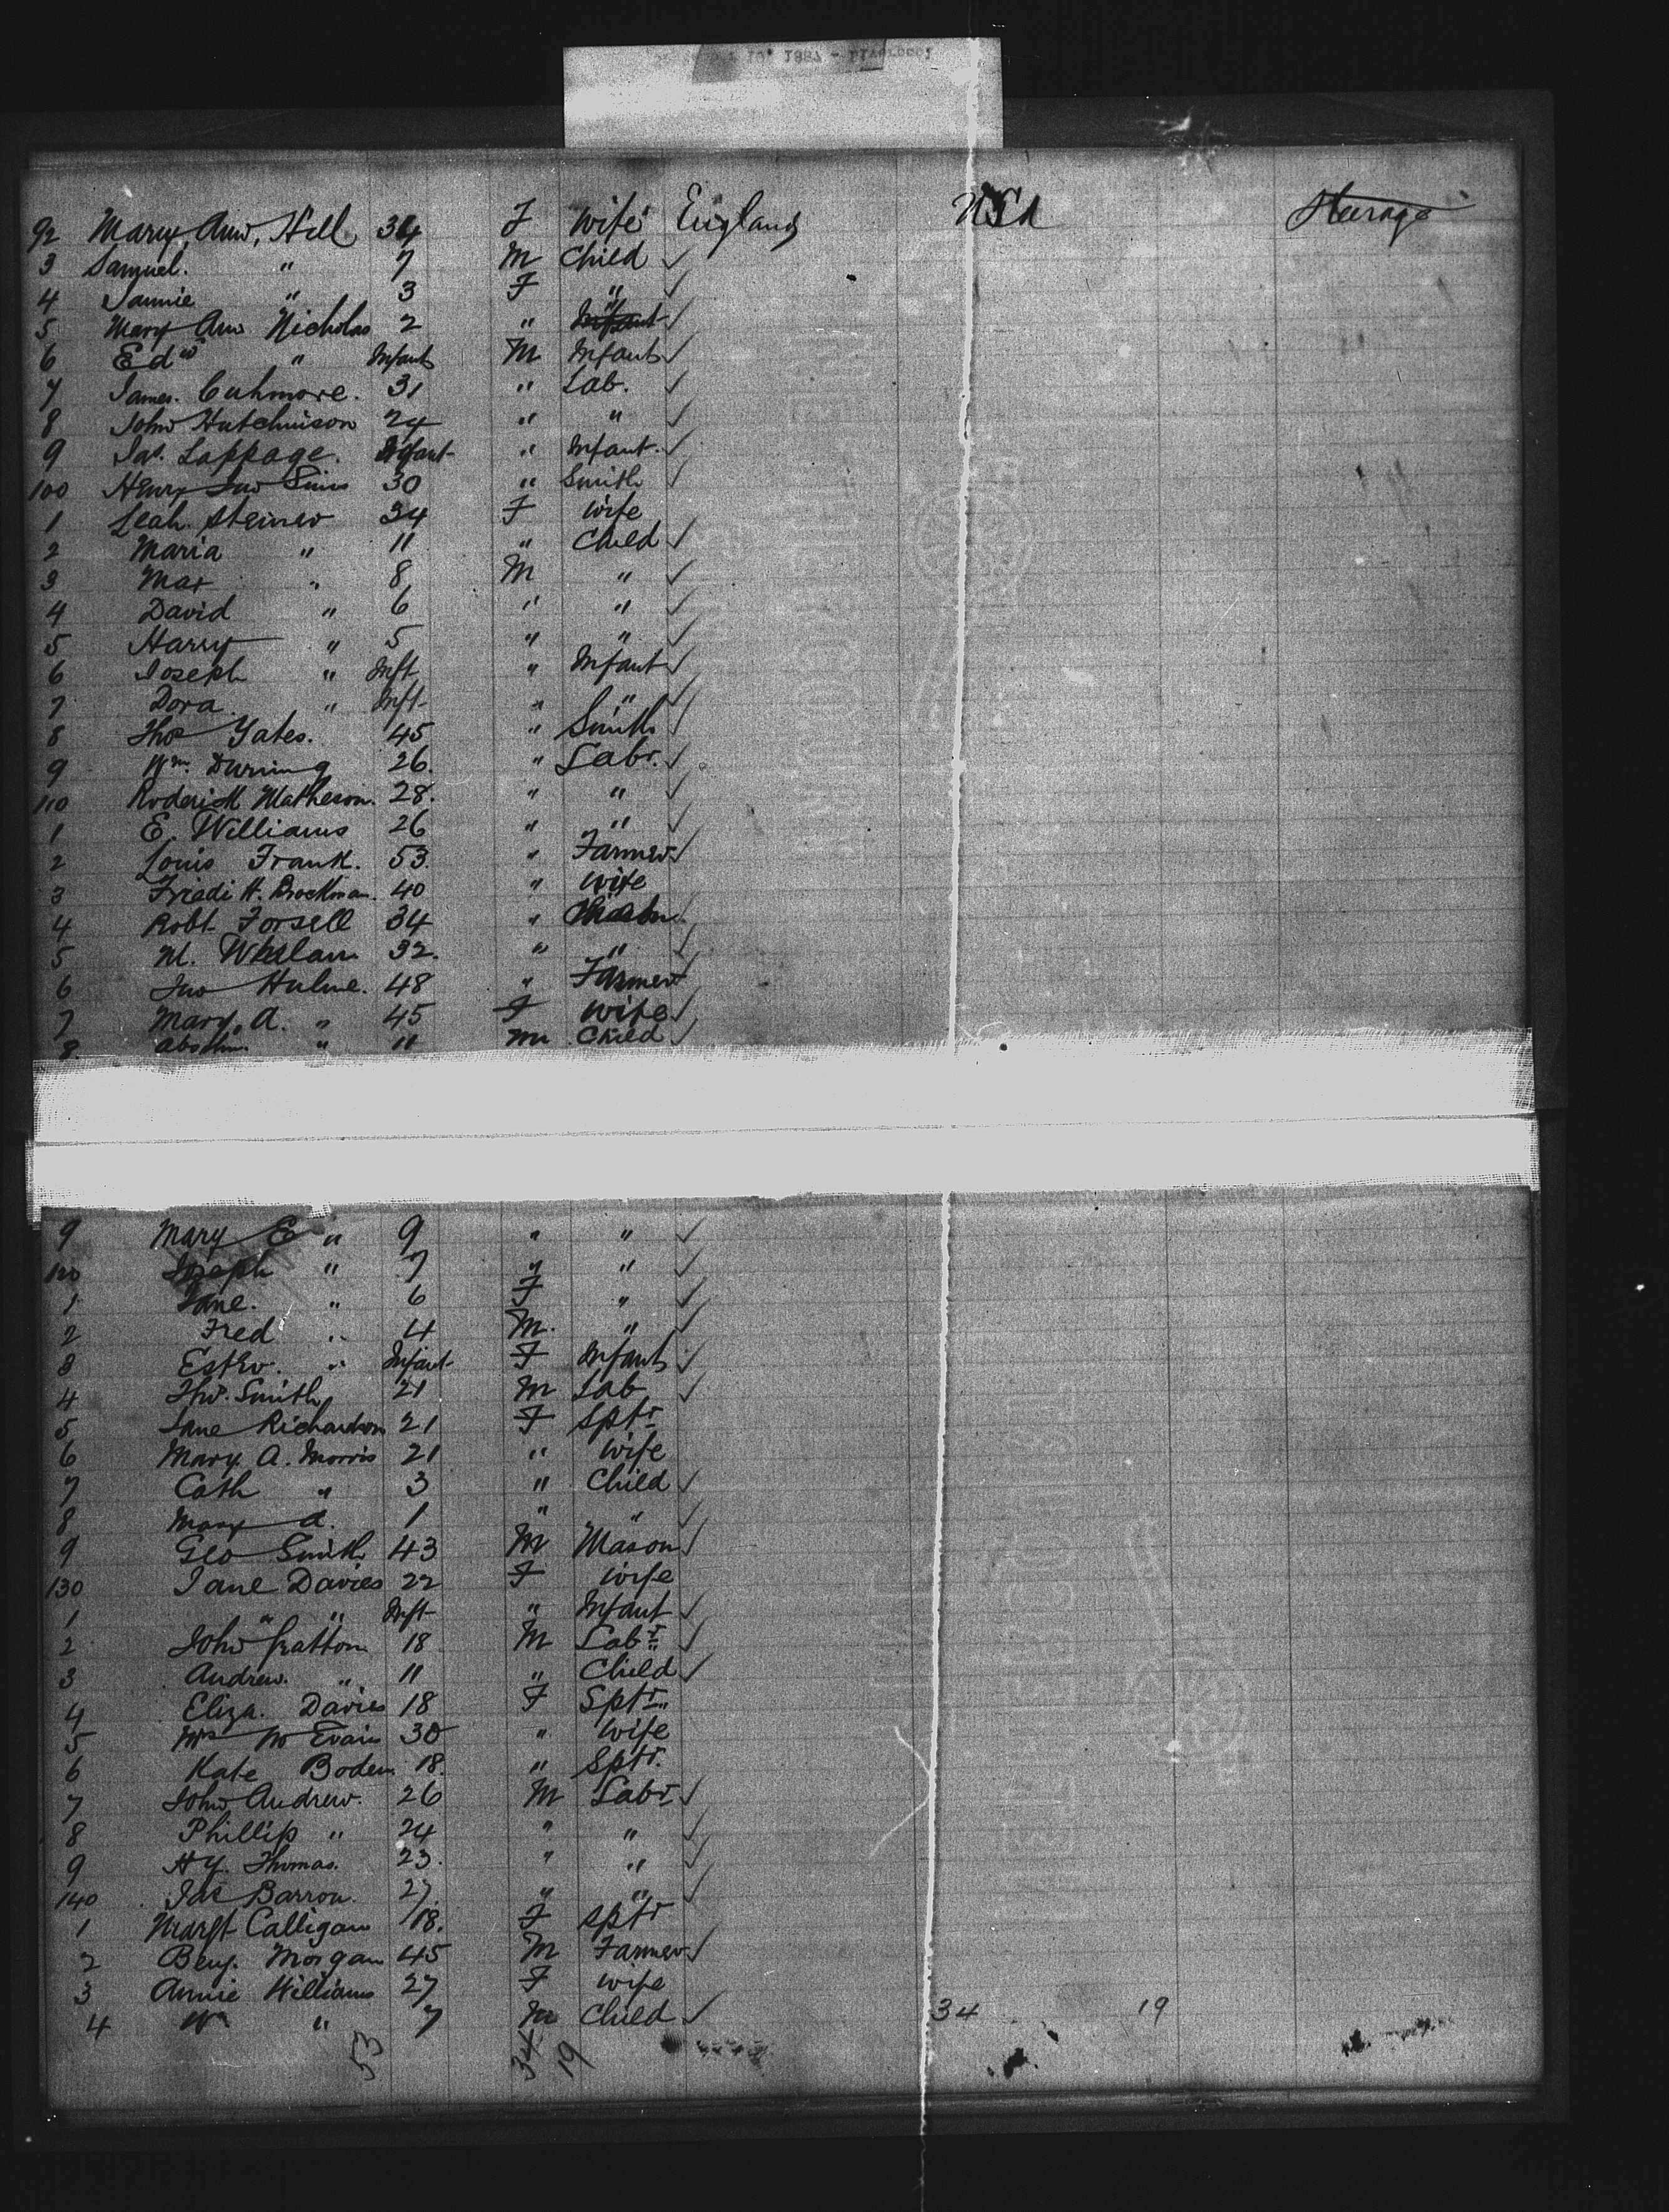 92 Mary Ann, Hill 34 F Wife England USA Steerage
3 Samuel. " 7 M Child ✓
4 Jannie " 3 F " ✓
5 Mary Ann Nicholas 2 " " ✓
6 Edwd " Infant M Infant ✓
7 James. Cuhmore. 31 " Lab. ✓
8 John Hutchinson 24 " " ✓
9 Jas. Lappage. Infant " Infant. ✓
100 Henry Jno Sims 30 " Smith ✓
1 Leah. Steiner 34 F Wife
2 Maria " 11 " Child ✓
3 Max " 8 M " ✓
4 David " 6 " " ✓
5 Harry " 5 " " ✓
6 Joseph " Inft " Infant ✓
7 Dora. " Inft " " ✓
8 Thos Yates. 45 " Smith ✓
9 Wm. During 26. " Labr. ✓
110 Roderick Matheson. 28. " " ✓
1 E. Williams 26 " " ✓
2 Louis Frank. 53. " Farmer ✓
3 Friedi H. Brockman. 40 " Wife
4 Robt Forsell 34 "
5 M. Whelan 32. " " ✓
6 Jno Hulme. 48 " Farmer
7 Mary. A. " 45 F Wife ✓
8 " 11 m Child ✓
9 Mary E " 9 " " ✓
120 Joseph " 7 " " ✓
1 Jane. " 6 F " ✓
2 Fred " 4 M. " ✓
3 Esthr. " Infant F Infant ✓
4 Thos. Smith 21 M Lab ✓
5 Jane Richardson 21 F Sptr
6 Mary. A. Morris 21 " Wife
7 Cath " 3 " Child ✓
8 Mary A. 1 " " ✓
9 Geo Smith 43 M Mason ✓
130 Jane Davies 22 F Wife
1 " " Inft " Infant ✓
2 John Gratton 18 M Labr ✓
3 Andrew. " 11 " Child ✓
4 Eliza. Davies 18 F Sptr
5 Mrs W Evans 30 " Wife
6 Kate Boden 18. " Sptr.
7 John Andrew. 26 M Labr ✓
8 Phillip " 24 " " ✓
9 Hy. Thomas. 23. " " ✓
140 Jas Barron. 27. " " ✓
1 Margt Calligan 18. F Sptr
2 Benj. Morgan 45 M Farmer ✓
3 Annie Williams 27 F Wife
4 Wm " 7 M Child ✓ 34 19
53 34 19